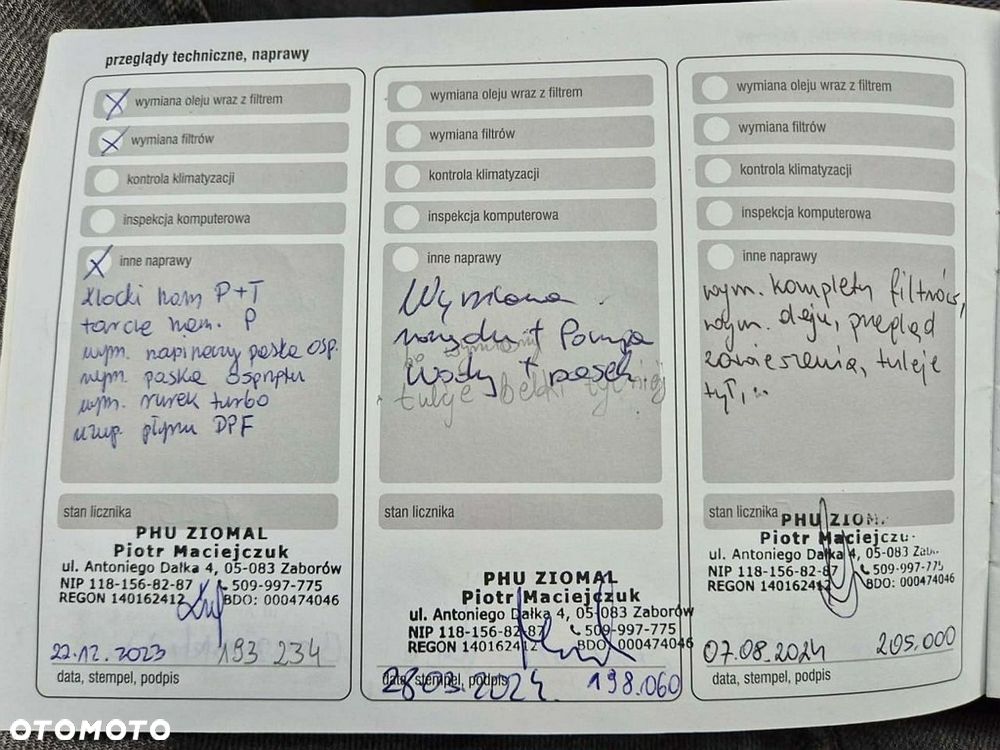 przeglądy techniczne, naprawy
wymiana oleju wraz z filtrem
wymiana filtrów
kontrola klimatyzacji
inspekcja komputerowa
inne naprawy
klocki ham P+T
tarcie ham. P
wym. napinaczy paska osp.
wym. paska osprzętu
wym. rurek turbo
uzup. płynu DPF
stan licznika
PHU ZIOMAL
Piotr Maciejczuk
ul. Antoniego Dałka 4, 05-083 Zaborów
NIP 118-156-82-87 509-997-775
REGON 140162412 BDO: 000474046
22.12.2023 193 234
data, stempel, podpis
wymiana oleju wraz z filtrem
wymiana filtrów
kontrola klimatyzacji
inspekcja komputerowa
inne naprawy
Wymiana
rozrządu + Pompa
wody + pasek
tuleje belki tylniej
stan licznika
PHU ZIOMAL
Piotr Maciejczuk
ul. Antoniego Dałka 4, 05-083 Zaborów
NIP 118-156-82-87 509-997-775
REGON 140162412 BDO: 000474046
28.03.2024. 198.060
data, stempel, podpis
wymiana oleju wraz z filtrem
wymiana filtrów
kontrola klimatyzacji
inspekcja komputerowa
inne naprawy
wym. komplety filtrów,
wym. oleju, przegląd
zawieszenia, tuleje
tył, ..
stan licznika
PHU ZIOM
Piotr Maciejczu
ul. Antoniego Dałka 4, 05-083 Zab
NIP 118-156-82-87 509-997-775
REGON 140162412 BDO: 000474046
07.08.2024 205.000
data, stempel, podpis
OTOMOTO